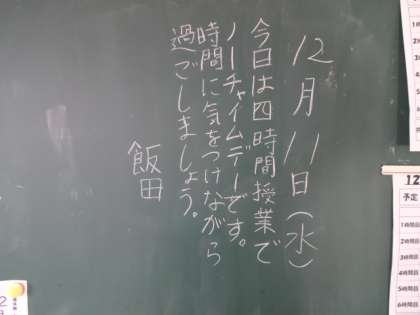 12月11日(水)
今日は四時間授業で
ノーチャイムデーです。
時間に気をつけながら
過ごしましょう。
飯田
12
予定
1時間目
2時間目
3時間目
4時間目
5時間目
6時間目